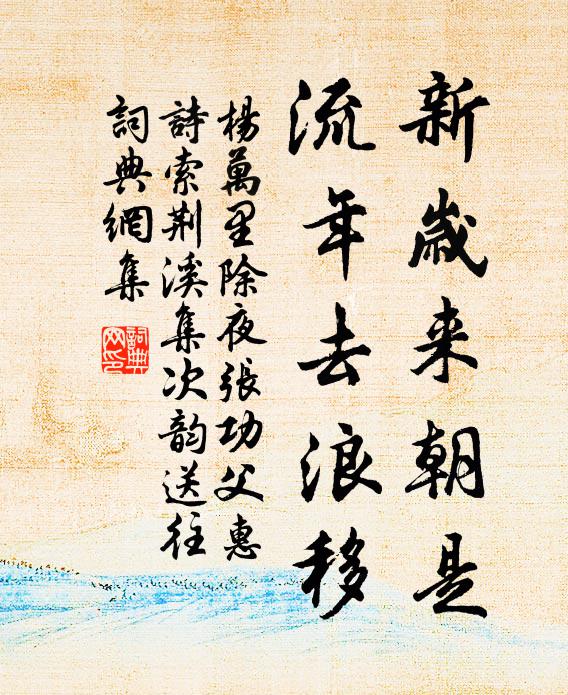 新歲来朝是
流年去浪移
楊萬里除夜張功父惠
詩索荆溪集次韵送往
詞典網集
詞典
网印